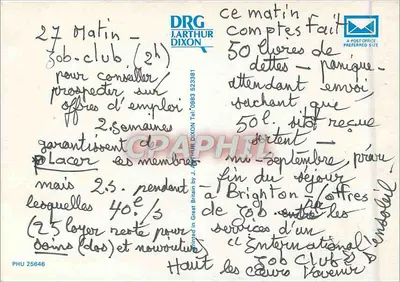 27 Matin -
Job-club (2h)
pour conseiller
prospecter sur
offres d'emploi
2 semaines
garantissent de
placer les membres
mais 2 s. pendant
lesquelles 40£/s
(25 loyer reste pour
soins (dos) et nourriture)
DRG
J. ARTHUR
DIXON
A POST OFFICE
PREFERRED SIZE
ce matin
comptes fait
50 livres de
dettes - panique -
attendant envoi
sachant que
50 l. sitôt reçue
sortent -
mi-septembre, prévu
fin du séjour
à Brighton - /offres
de job les
services d'un
"International
Job Club"
Haut les cœurs l'avenir
ensoleil
Printed in Great Britain by J. ARTHUR DIXON Tel 0983 523381
PHU 25646
CPARAMA